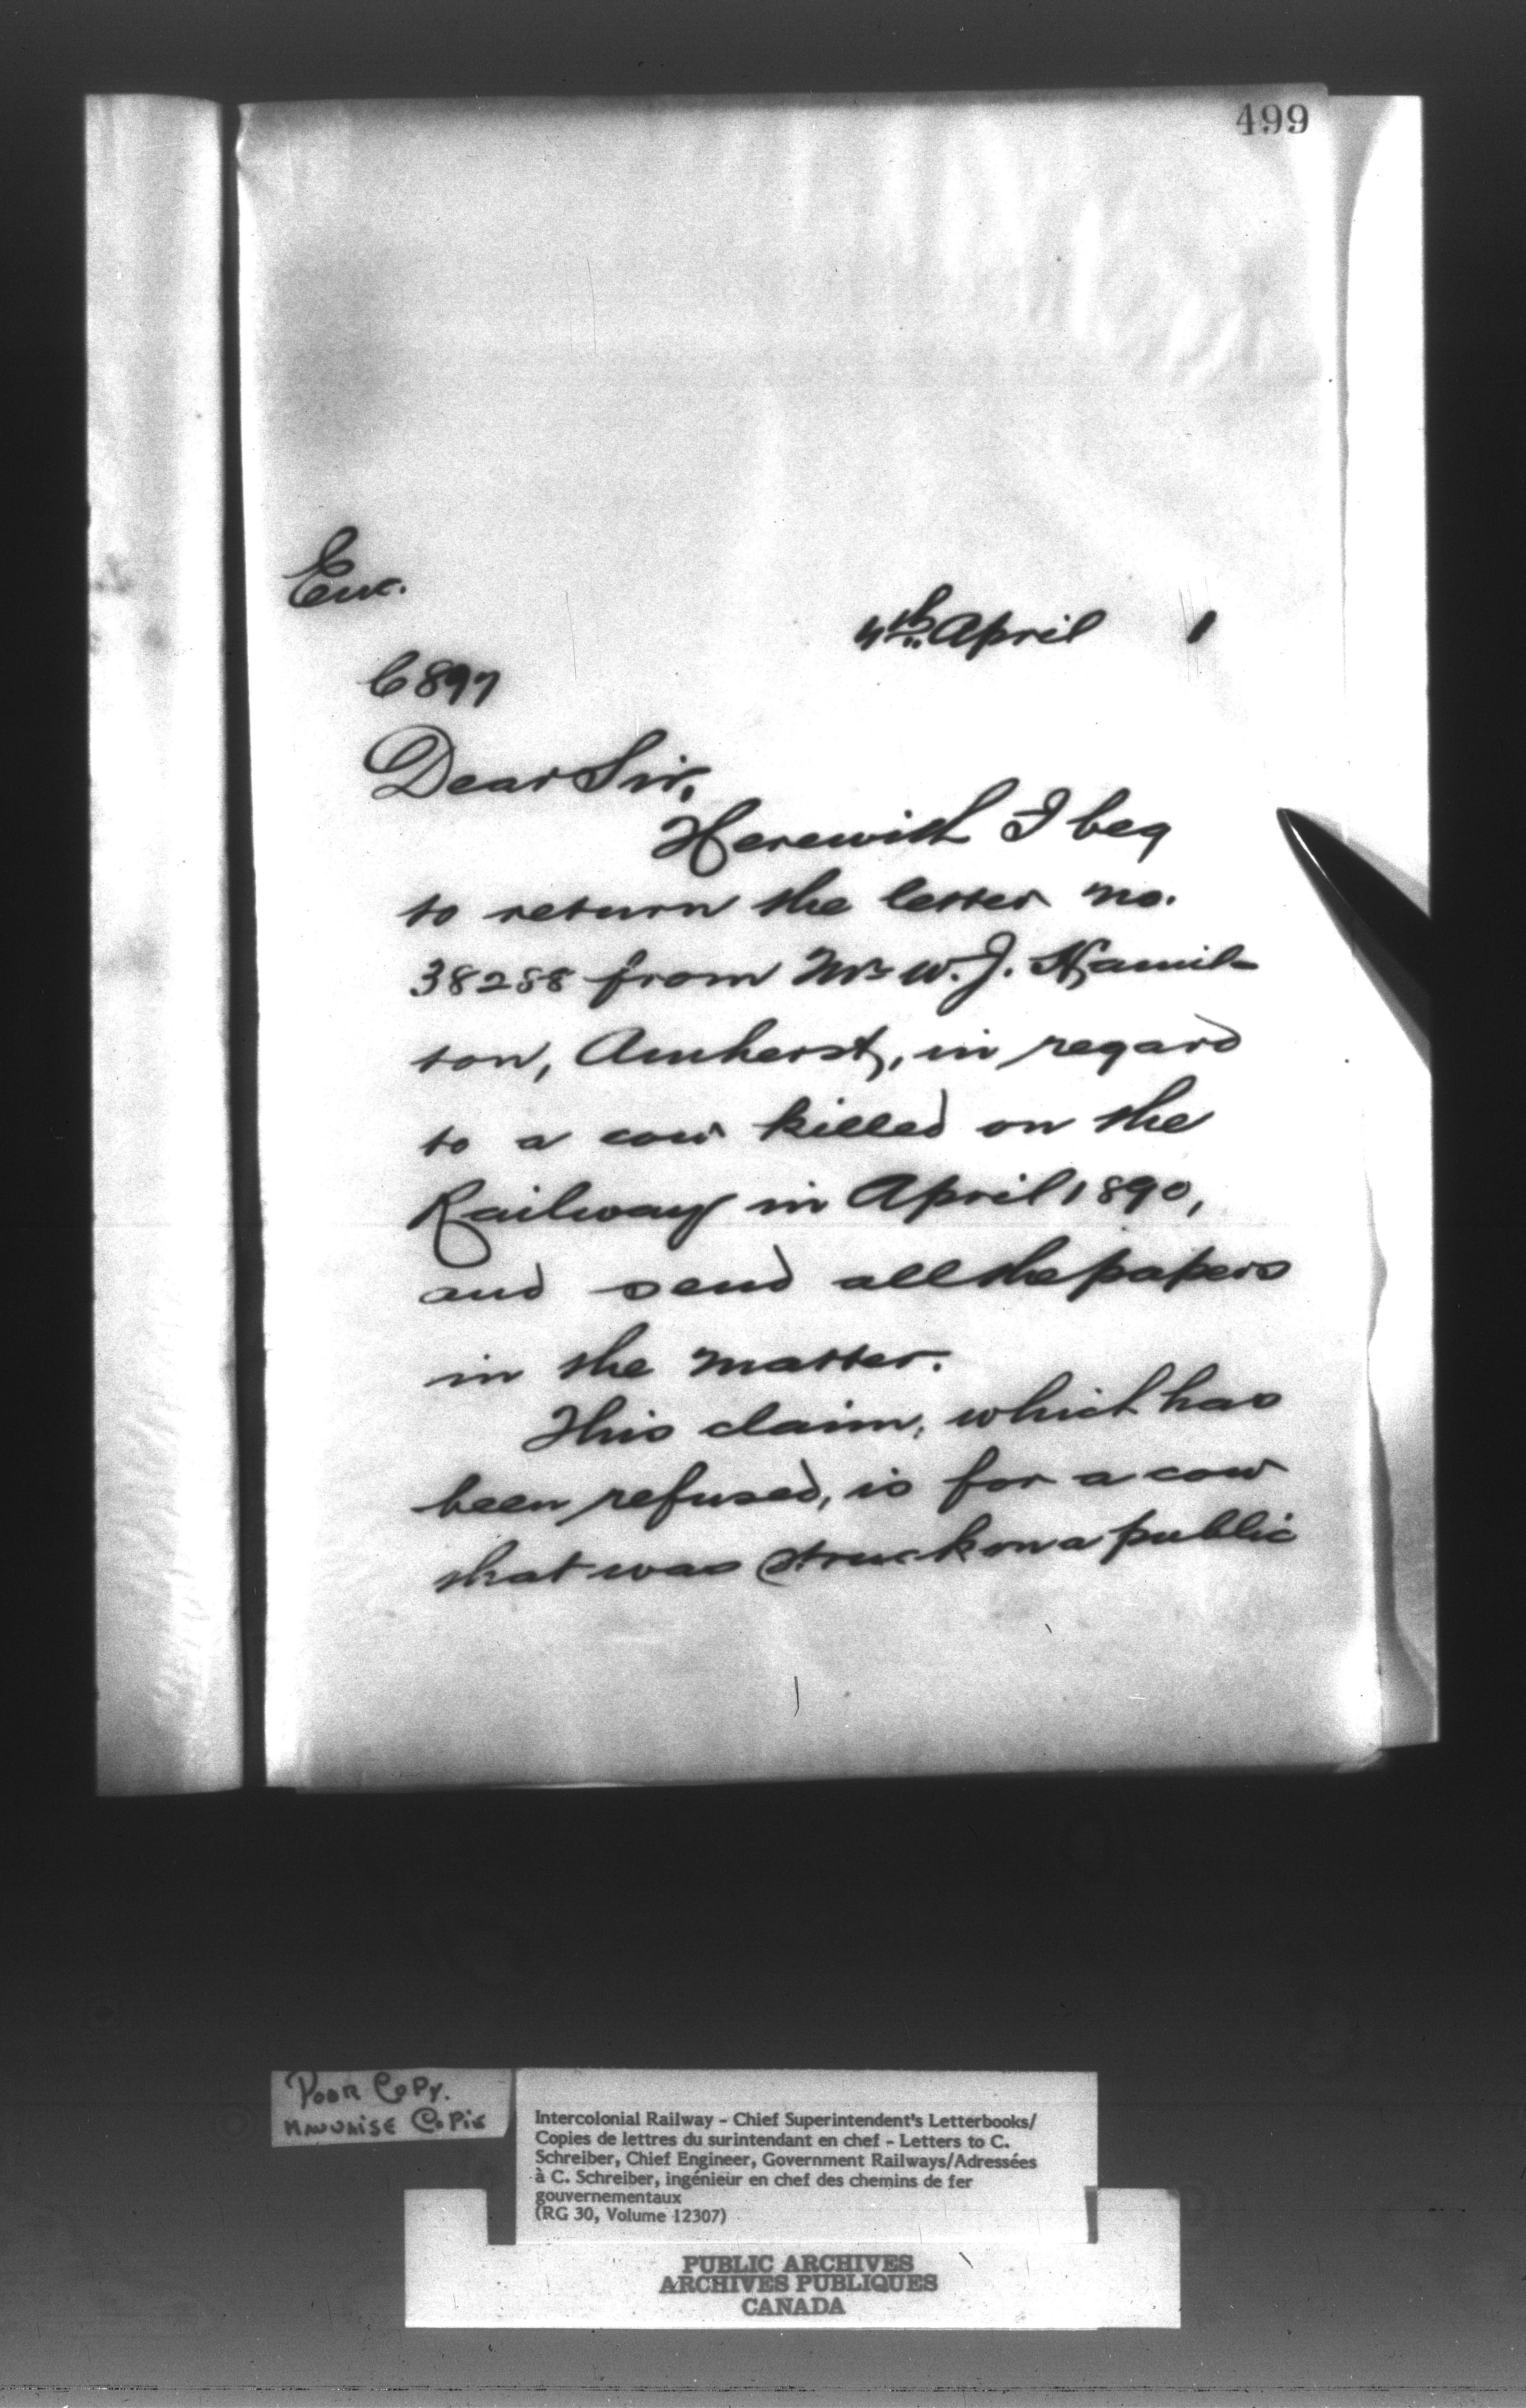 499
Enc.
4th April 1
6897
Dear Sir,
Herewith I beg
to return the letter no.
38288 from Mr W. J. Hamil-
ton, Amherst, in regard
to a cow killed on the
Railway in April 1890,
and send all the papers
in the matter.
This claim, which has
been refused, is for a cow
that was struck on a public
POOR COPY.
MAUVAISE COPIE
Intercolonial Railway - Chief Superintendent's Letterbooks/
Copies de lettres du surintendant en chef - Letters to C.
Schreiber, Chief Engineer, Government Railways/Adressées
à C. Schreiber, ingénieur en chef des chemins de fer
gouvernementaux
(RG 30, Volume 12307)
PUBLIC ARCHIVES
ARCHIVES PUBLIQUES
CANADA